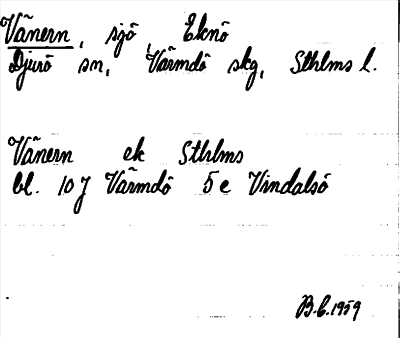 Vänern, sjö, Eknö
Djurö sn, Värmdö skg, Sthlms l.
Vänern ek Sthlms
bl. 10 J Värmdö 5 e Vindalsö
B.C. 1959